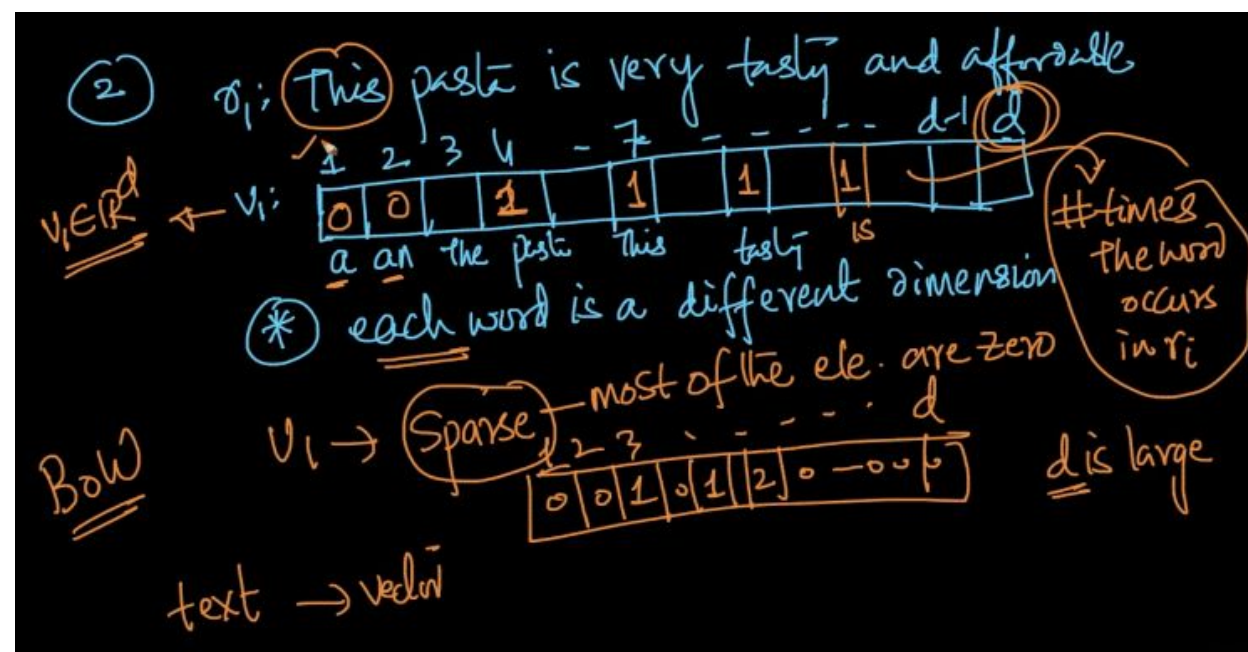 2 r₁: This pasta is very tasty and affordable
1 2 3 4 - 7 - - - - - - d-1 d
v₁∈ℝᵈ ← v₁: 0 0 1 1 1 1
a an the pasta This tasty is
# times the word occurs in rᵢ
* each word is a different dimension
v₁ → Sparse — most of the ele. are zero
1 2 3 - - - - - . d
BoW
0 0 1 0 1 2 0 — 0 0 0
d is large
text → vector